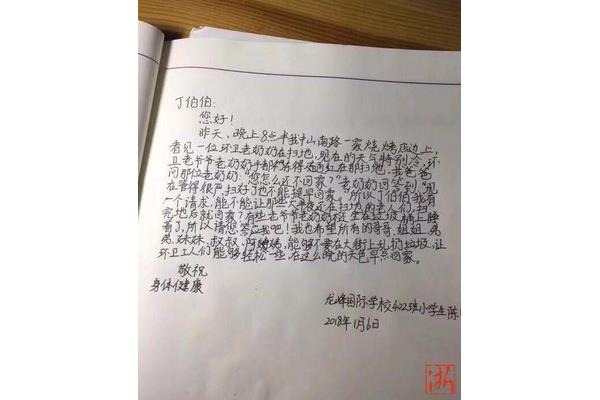 丁伯伯:
您好!
昨天,晚上8点半我中山南路一家烧烤店边上,
看见一位环卫老奶奶在扫地,现在的天气特别冷,环
卫老爷爷老奶奶手都冻得通红在那扫地,我爸爸
问那位老奶奶:“你怎么还不回家?”老奶奶回答到:“现
在管得很严,扫好了也不能提早回家。”所以丁伯伯我有
一个请求,能不能让那些大半夜还在扫地的老人们,扫
完地后就回家?有些老爷爷老奶奶
着了,所以请您答应我吧!我也希望所有的哥哥、姐姐、弟
弟、妹妹、叔叔、阿姨,能够不要在大街上乱扔垃圾,让
环卫工人们能够轻松一些,在这么晚的天色早点回家。
敬祝
身体健康
龙峰国际学校402班小学生陈
2018年1月6日
浙